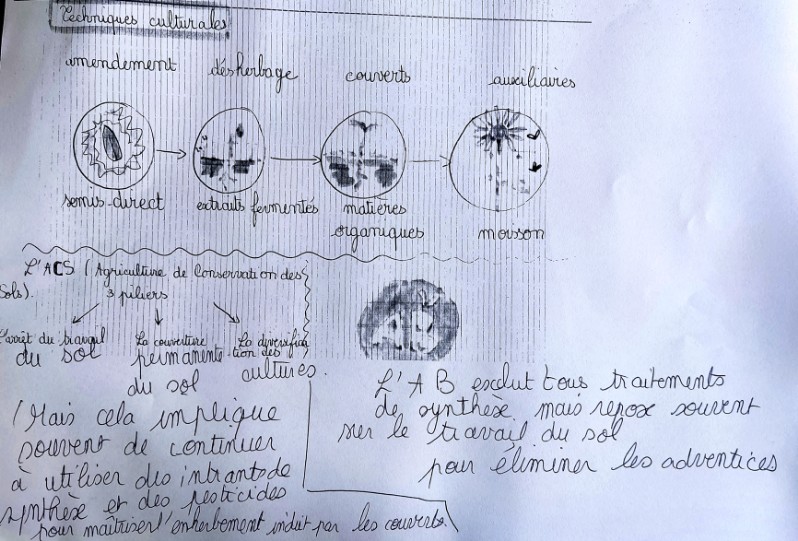 Techniques culturales
amendement désherbage couverts auxiliaires
semis-direct extraits fermentés matières organiques moisson
L'ACS (Agriculture de Conservation des
Sols).
3 piliers
L'arrêt du travail
du sol
La couverture
permanente
du sol
La diversifica
tion des
cultures.
(Mais cela implique
souvent de continuer
à utiliser des intrants de
synthèse et des pesticides
pour maîtriser l'enherbement induit par les couverts.
L'AB exclut tous traitements
de synthèse, mais repose souvent
sur le travail du sol
pour éliminer les adventices